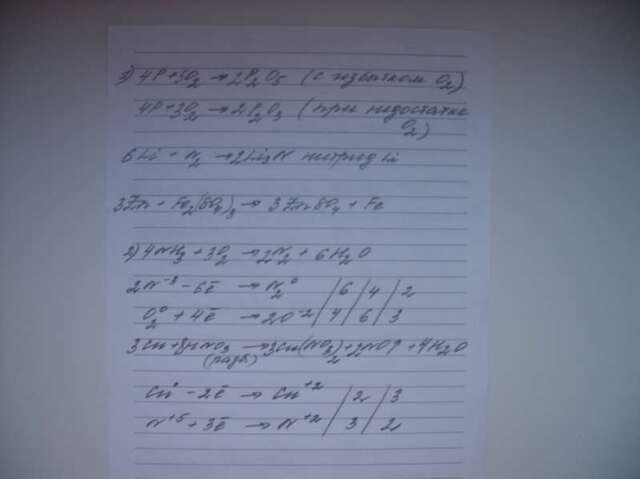 1) 4P+5O2 → 2P2O5 (с избытком O2)
4P+3O2 → 2P2O3 (при недостатке
O2)
6Li + N2 → 2Li3N нитрид Li
3Zn + Fe2(SO4)3 → 3ZnSO4 + Fe
2) 4NH3 + 3O2 → 2N2 + 6H2O
2N-3 - 6e → N2 0 / 6 / 4 / 2
O2 0 + 4e → 2O-2 / 4 / 6 / 3
3Cu+8HNO3 → 3Cu(NO3)2+2NO↑+4H2O
(разб.)
Cu0 - 2e → Cu+2 / 2 / 3
N+5 + 3e → N+2 / 3 / 2